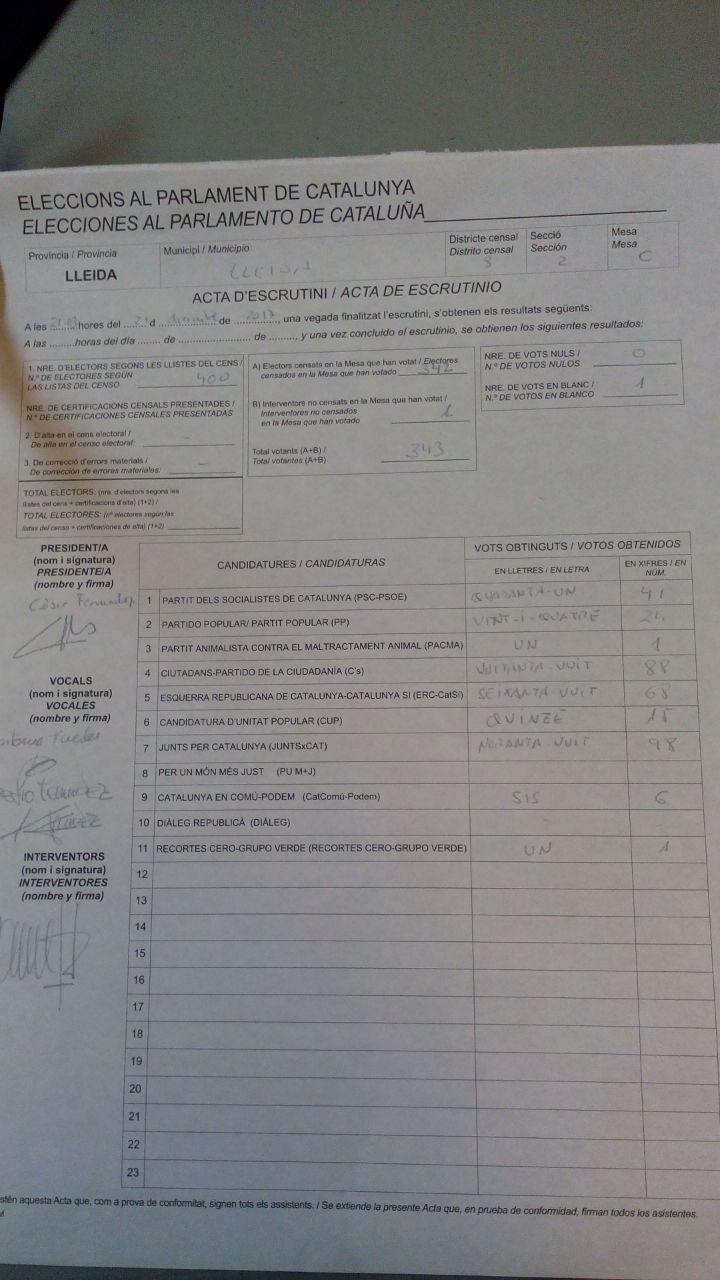 ELECCIONS AL PARLAMENT DE CATALUNYA
ELECCIONES AL PARLAMENTO DE CATALUÑA
Província / Provincia
LLEIDA
Municipi / Municipio
LLEIDA
Districte censal
Distrito censal
8
Secció
Sección
2
Mesa
Mesa
C
ACTA D'ESCRUTINI / ACTA DE ESCRUTINIO
A les hores del 21 d desembre de 2017, una vegada finalitzat l'escrutini, s'obtenen els resultats següents:
A las horas del día de de , y una vez concluido el escrutinio, se obtienen los siguientes resultados:
1. NRE. D'ELECTORS SEGONS LES LLISTES DEL CENS /
N.º DE ELECTORES SEGÚN
LAS LISTAS DEL CENSO 400
NRE. DE CERTIFICACIONS CENSALS PRESENTADES /
N.º DE CERTIFICACIONES CENSALES PRESENTADAS
2. D'alta en el cens electoral /
De alta en el censo electoral: -
3. De correcció d'errors materials /
De corrección de errores materiales: -
TOTAL ELECTORS: (nre. d'electors segons les
llistes del cens + certificacions d'alta) (1+2) /
TOTAL ELECTORES: (nº electores según las
listas del censo + certificaciones de alta) (1+2)
A) Electors censats en la Mesa que han votat / Electores
censados en la Mesa que han votado 342
B) Interventors no censats en la Mesa que han votat /
Interventores no censados
en la Mesa que han votado 1
Total votants (A+B) /
Total votantes (A+B) 343
NRE. DE VOTS NULS /
N.º DE VOTOS NULOS 0
NRE. DE VOTS EN BLANC /
N.º DE VOTOS EN BLANCO 1
PRESIDENT/A
(nom i signatura)
PRESIDENTE/A
(nombre y firma)
César Fernandez
VOCALS
(nom i signatura)
VOCALES
(nombre y firma)
INTERVENTORS
(nom i signatura)
INTERVENTORES
(nombre y firma)
CANDIDATURES / CANDIDATURAS
VOTS OBTINGUTS / VOTOS OBTENIDOS
EN LLETRES / EN LETRA
EN XIFRES / EN NÚM.
1 PARTIT DELS SOCIALISTES DE CATALUNYA (PSC-PSOE) QUARANTA-UN 41
2 PARTIDO POPULAR/ PARTIT POPULAR (PP) VINT-I-QUATRE 24
3 PARTIT ANIMALISTA CONTRA EL MALTRACTAMENT ANIMAL (PACMA) UN 1
4 CIUTADANS-PARTIDO DE LA CIUDADANÍA (C's) VUITANTA-VUIT 88
5 ESQUERRA REPUBLICANA DE CATALUNYA-CATALUNYA SÍ (ERC-CatSí) SEIXANTA-VUIT 68
6 CANDIDATURA D'UNITAT POPULAR (CUP) QUINZE 15
7 JUNTS PER CATALUNYA (JUNTSxCAT) NORANTA-VUIT 98
8 PER UN MÓN MÉS JUST (PU M+J)
9 CATALUNYA EN COMÚ-PODEM (CatComú-Podem) SIS 6
10 DIÀLEG REPUBLICÀ (DIÀLEG) -
11 RECORTES CERO-GRUPO VERDE (RECORTES CERO-GRUPO VERDE) UN 1
12
13
14
15
16
17
18
19
20
21
22
23
stén aquesta Acta que, com a prova de conformitat, signen tots els assistents. / Se extiende la presente Acta que, en prueba de conformidad, firman todos los asistentes.